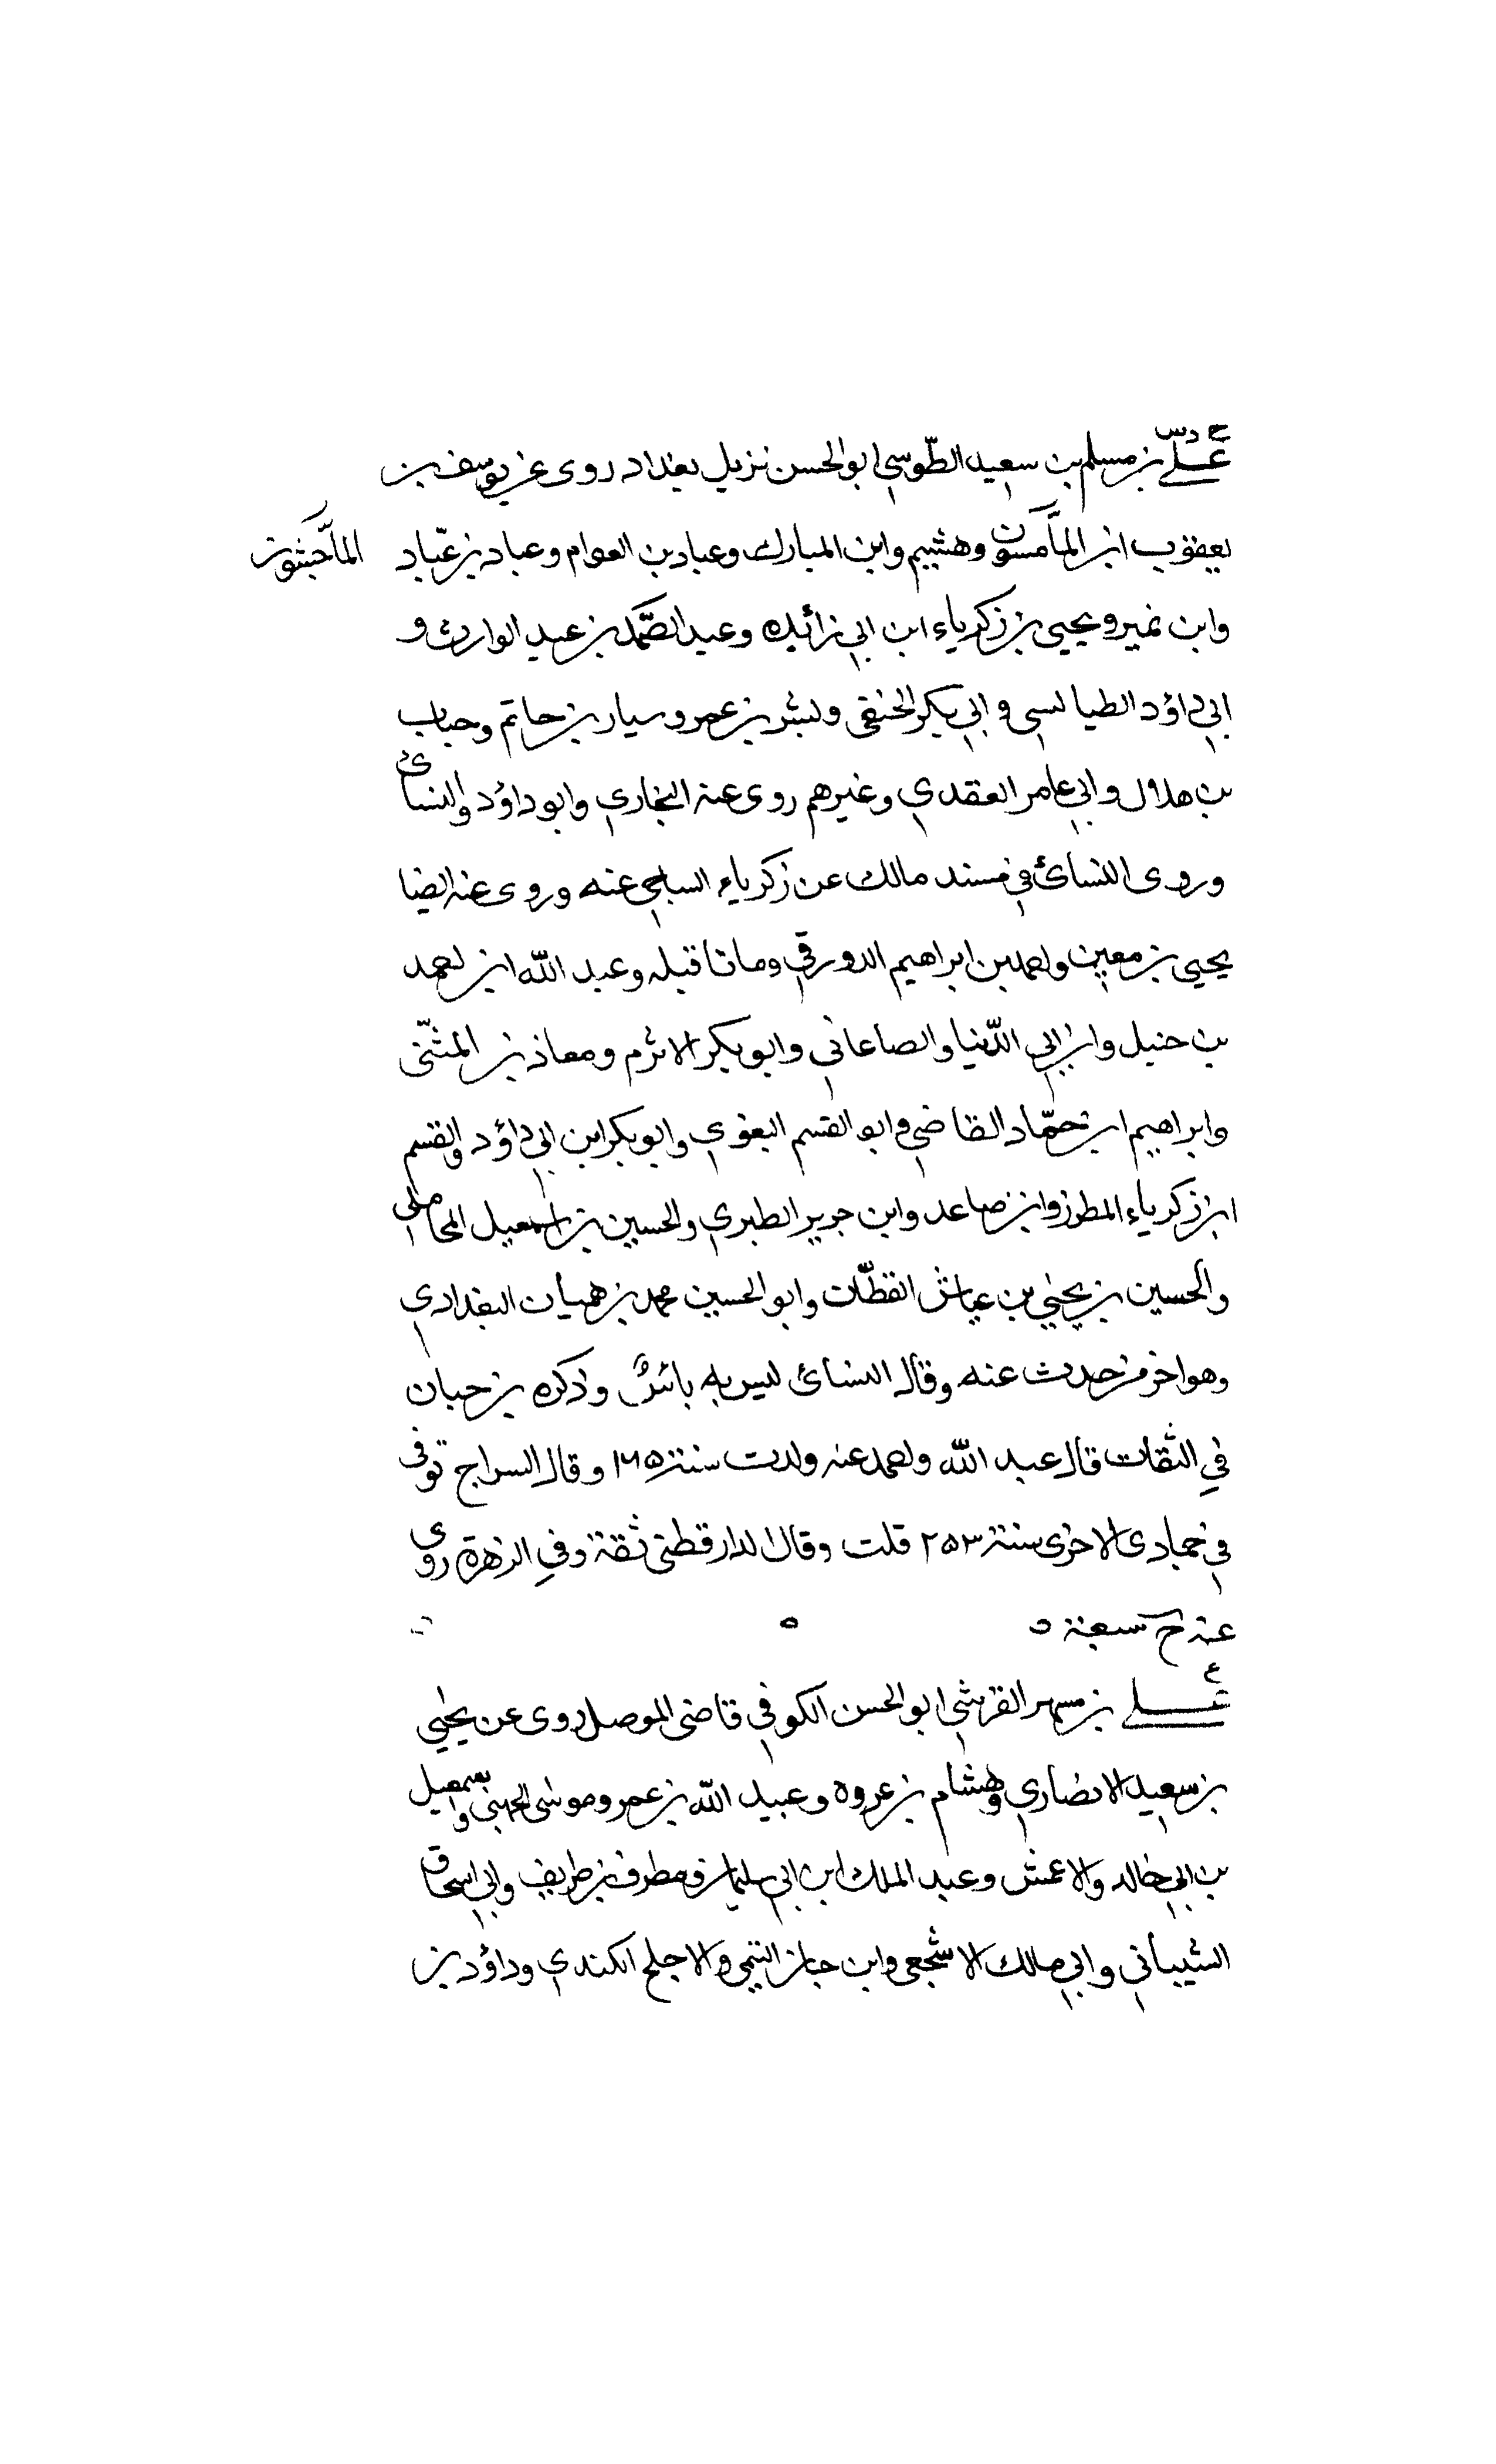 خ دس
علي بن مسلم بن سعيد الطّوسي ابو الحسن نزيل بغداد روى عن يوسف بن
يعقوب ابن الماَمسون وهشيم وابن المبارك وعباد بن العوام وعباد بن عبّاد الماجشون
وابن نمير و يحيى بن زكرياء ابن ابي زائده وعبد الصّمد بن عبد الوارث و
ابي داؤد الطيالسي و ابي بكر الحنفي وبشر بن عمر وسيار بن حاتم وحباب
بن هلال وابي عامر العقدي وغيرهم روى عنه البخاري وابو داؤد والنسائ
وروى النسائ في مسند مالك عن زكرياء الساجي عنه وروى عنه ايضا
يحيى بن معين واحمد بن ابراهيم الدورقي وماتا قبله وعبد الله ابن احمد
بن حنبل وابن ابي الدّنيا والصاغاني وابو بكر الاثرم ومعاذ بن المثنّى
وابراهيم ابن حمّاد القاضي و ابو القسم البغوي وابو بكر ابن ابي داؤد والقسم
ابن زكرياء المطرز وابن صاعد وابن جرير الطبري والحسين بن اسمعيل المحاملي
والحسين بن يحيى بن عياش القطّان وابو الحسين محمد بن هميان البغدادي
وهو اخر من حدث عنه وقال النسائ ليس به باسٌ وذكره بن حبان
في الثقات قال عبد الله واحمد عنه ولدت سنة ١٦٥ وقال السراج توفي
في جمادى الاخرى سنة ٢٥٣ قلت وقال الدارقطني ثقة وفي الزهرة روى
عنه خ سبعة ٥
ع
علي بن مسهر القرشي ابو الحسن الكوفي قاضي الموصل روى عن يحيى
بن سعيد الانصاري وهشام بن عروه وعبيد الله بن عمر وموسى الجهني واسمعيل
بن ابي خالد والاعمش وعبد الملك ابن ابي سليمان ومطرف بن طريف وابي اسحاق
الشيباني وابي مالك الاشجعي وابن حيان التيمي والاجلح الكندي وداؤد بن